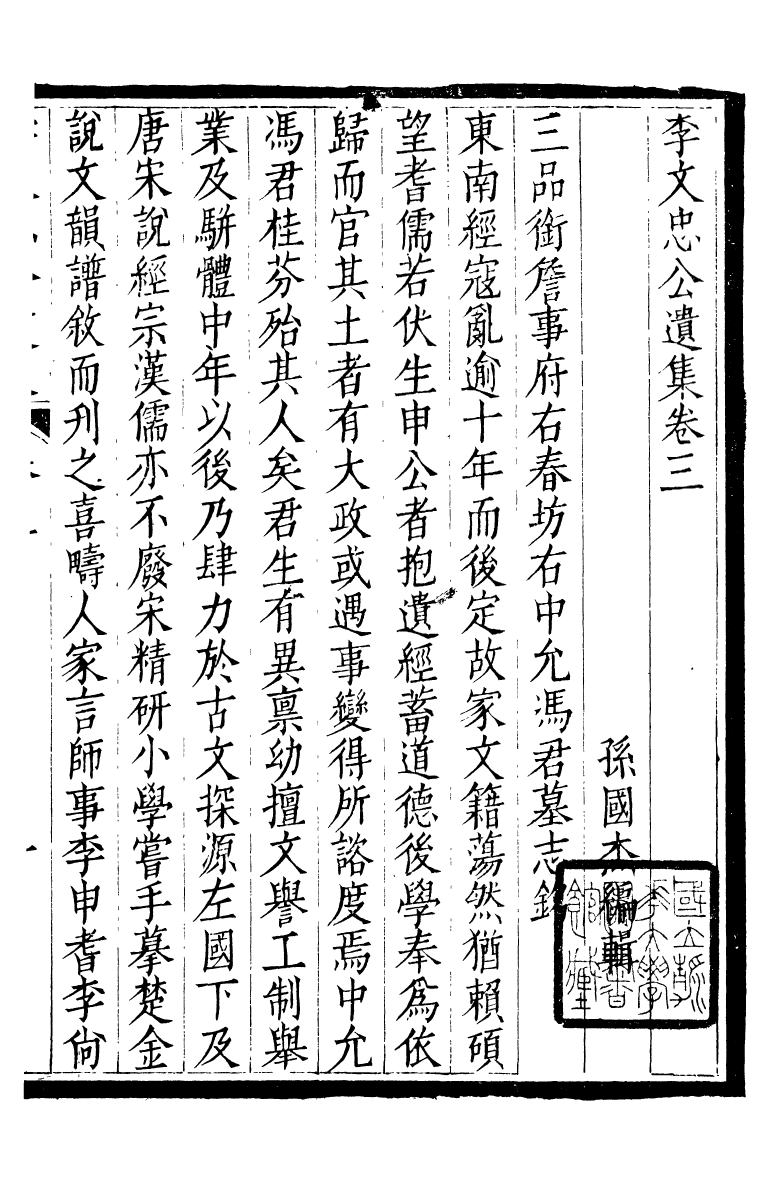 李文忠公遺集卷三
孫國杰編輯
三品銜詹事府右春坊右中允馮君墓志銘
東南經寇亂逾十年而後定故家文籍蕩然猶賴碩
望耆儒若伏生申公者抱遺經蓄道德後學奉爲依
歸而官其土者有大政或遇事變得所諮度焉中允
馮君桂芬殆其人矣君生有異禀幼擅文譽工制舉
業及駢體中年以後乃肆力於古文探源左國下及
唐宋說經宗漢儒亦不廢宋精研小學嘗手摹楚金
說文韻譜敘而刋之喜疇人家言師事李申耆李尙